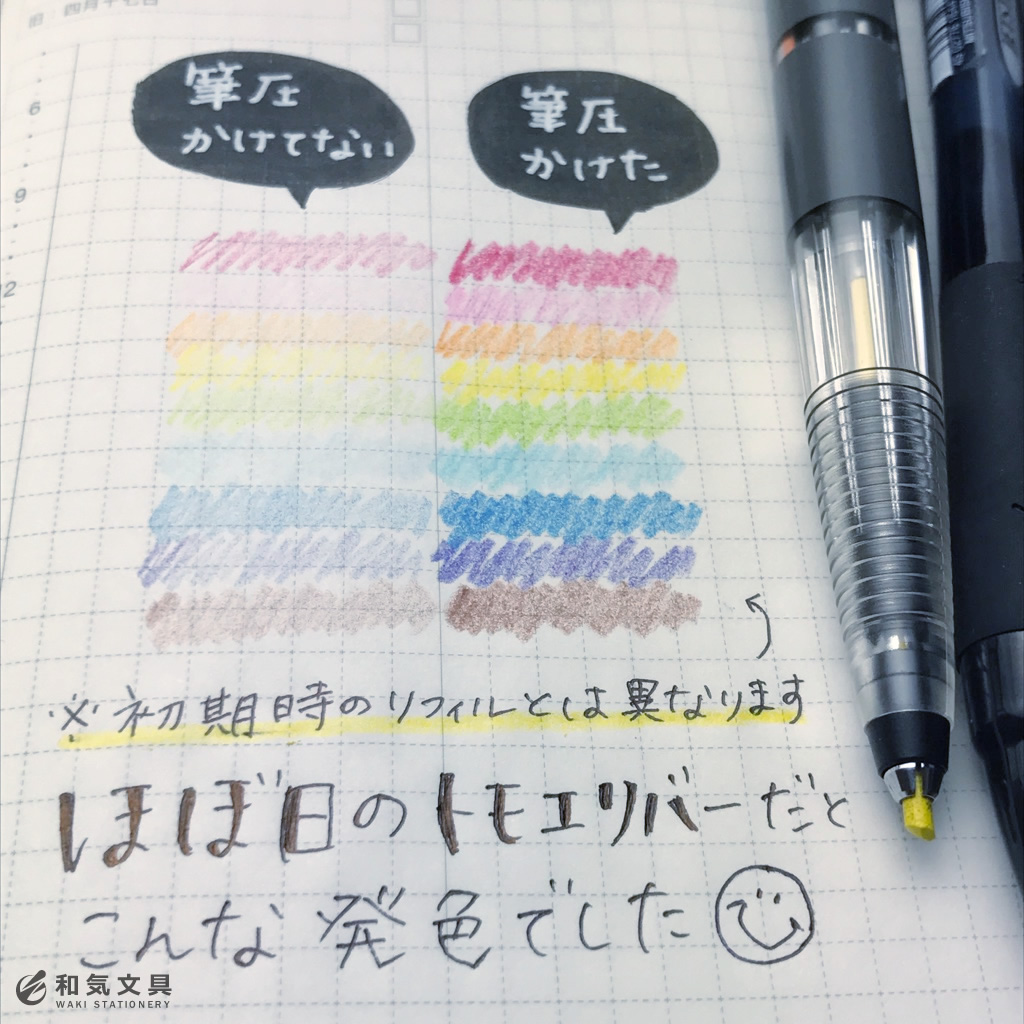 旧 四月十七日
6
9
筆圧
かけてない
筆圧
かけた
※初期時のリフィルとは異なります
ほぼ日のトモエリバーだと
こんな発色でした
和気文具
WAKI STATIONERY